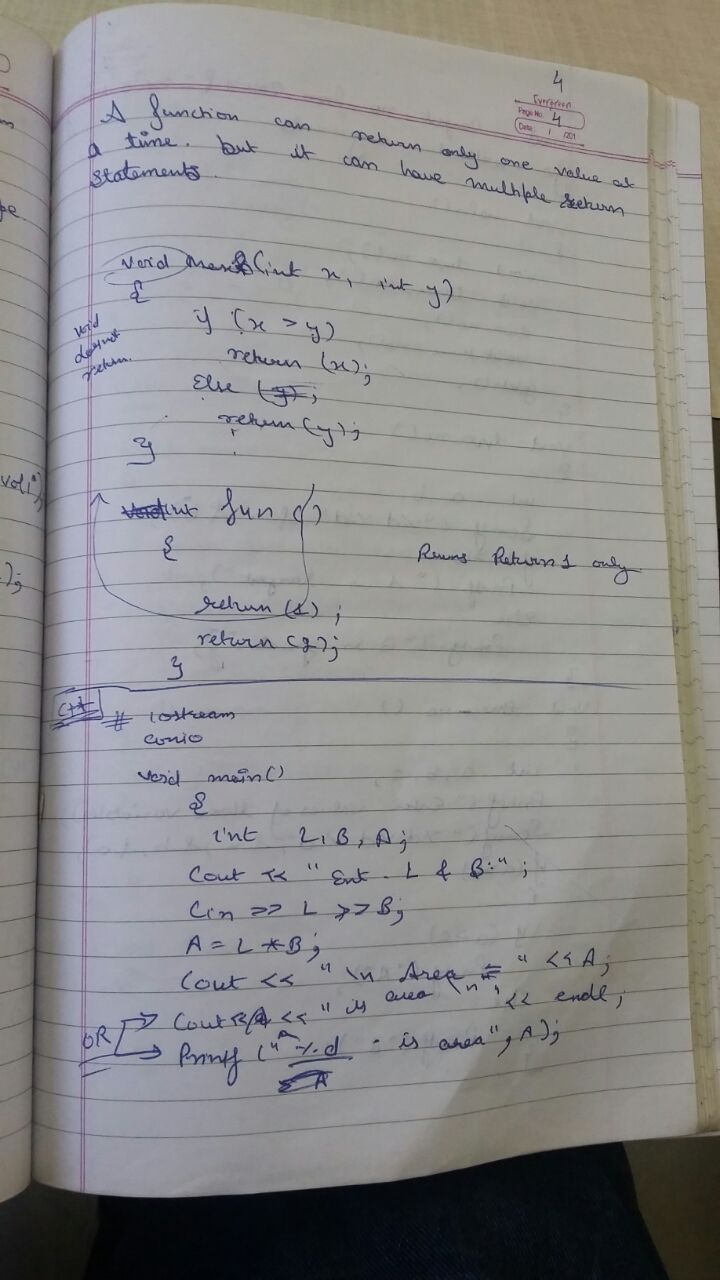 4
Evergreen
Page No. 4
Date: / /201
A function can return only one value at
a time. but it can have multiple return
statements.
void (int x, int y)
{
void
does not
return.
if (x > y)
return (x);
Else (y);
return (y);
}
void int fun ()
{
Returns 1 only
return (1);
return (2);
}
C++
# iostream
conio
void main()
{
int L, B, A;
Cout << " Ent. L & B:" ;
Cin >> L >> B;
A = L * B;
Cout << " \n Area = " << A;
OR
Cout << A << " is area \n" << endl;
Printf (" %d is area", A);
A
vol
);